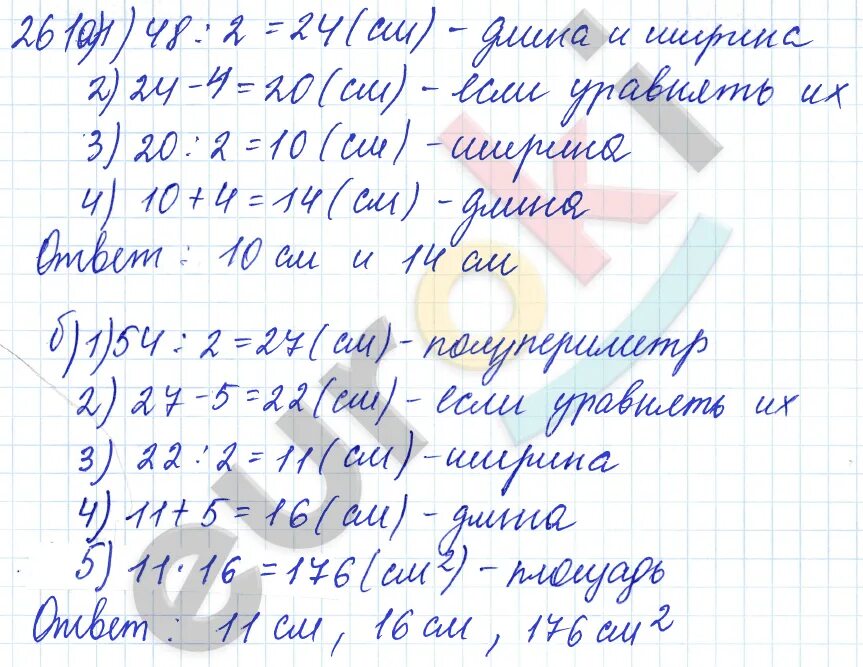 261а) 1) 48 : 2 = 24 (см) - длина и ширина
2) 24 - 4 = 20 (см) - если уравнять их
3) 20 : 2 = 10 (см) - ширина
4) 10 + 4 = 14 (см) - длина
Ответ : 10 см и 14 см
б) 1) 54 : 2 = 27 (см) - полупериметр
2) 27 - 5 = 22 (см) - если уравнять их
3) 22 : 2 = 11 (см) - ширина
4) 11 + 5 = 16 (см) - длина
5) 11 · 16 = 176 (см²) - площадь
Ответ : 11 см , 16 см , 176 см²
euroki